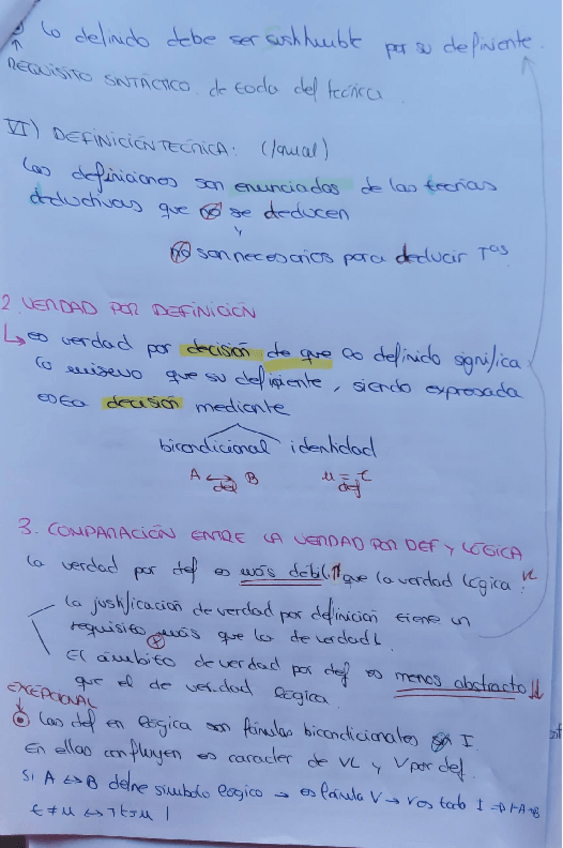 Lo definido debe ser sustituible por su definiente.
REQUISITO SINTÁCTICO de toda def técnica
VI) DEFINICIÓN TECNICA: (/qual)
Las definiciones son enunciados de las teorías
deductivas que no se deducen
y
no son necesarios para deducir Tas
2. VERDAD POR DEFINICIÓN
↳ es verdad por decisión de que lo definido significa
lo mismo que su definiente, siendo expresada
esta decisión mediante
bicondicional identidad
A ↔ def B u = def t
3. COMPARACIÓN ENTRE LA VERDAD POR DEF Y LÓGICA
La verdad por def es más débil que la verdad lógica:
La justificación de verdad por definición tiene un
requisito más que la de verdad L.
El ámbito de verdad por def es menos abstracto ↓↓
que el de verdad lógica.
EXEPCIONAL
Las def en lógica son fórmulas bicondicionales en I.
En ellas confluyen es caracter de VL y V por def.
Si A ↔ B define símbolo lógico → es fórmula V → V es todo I ⇒ ⊢ A ↔ B
t ≠ u ↔ ¬ t = u